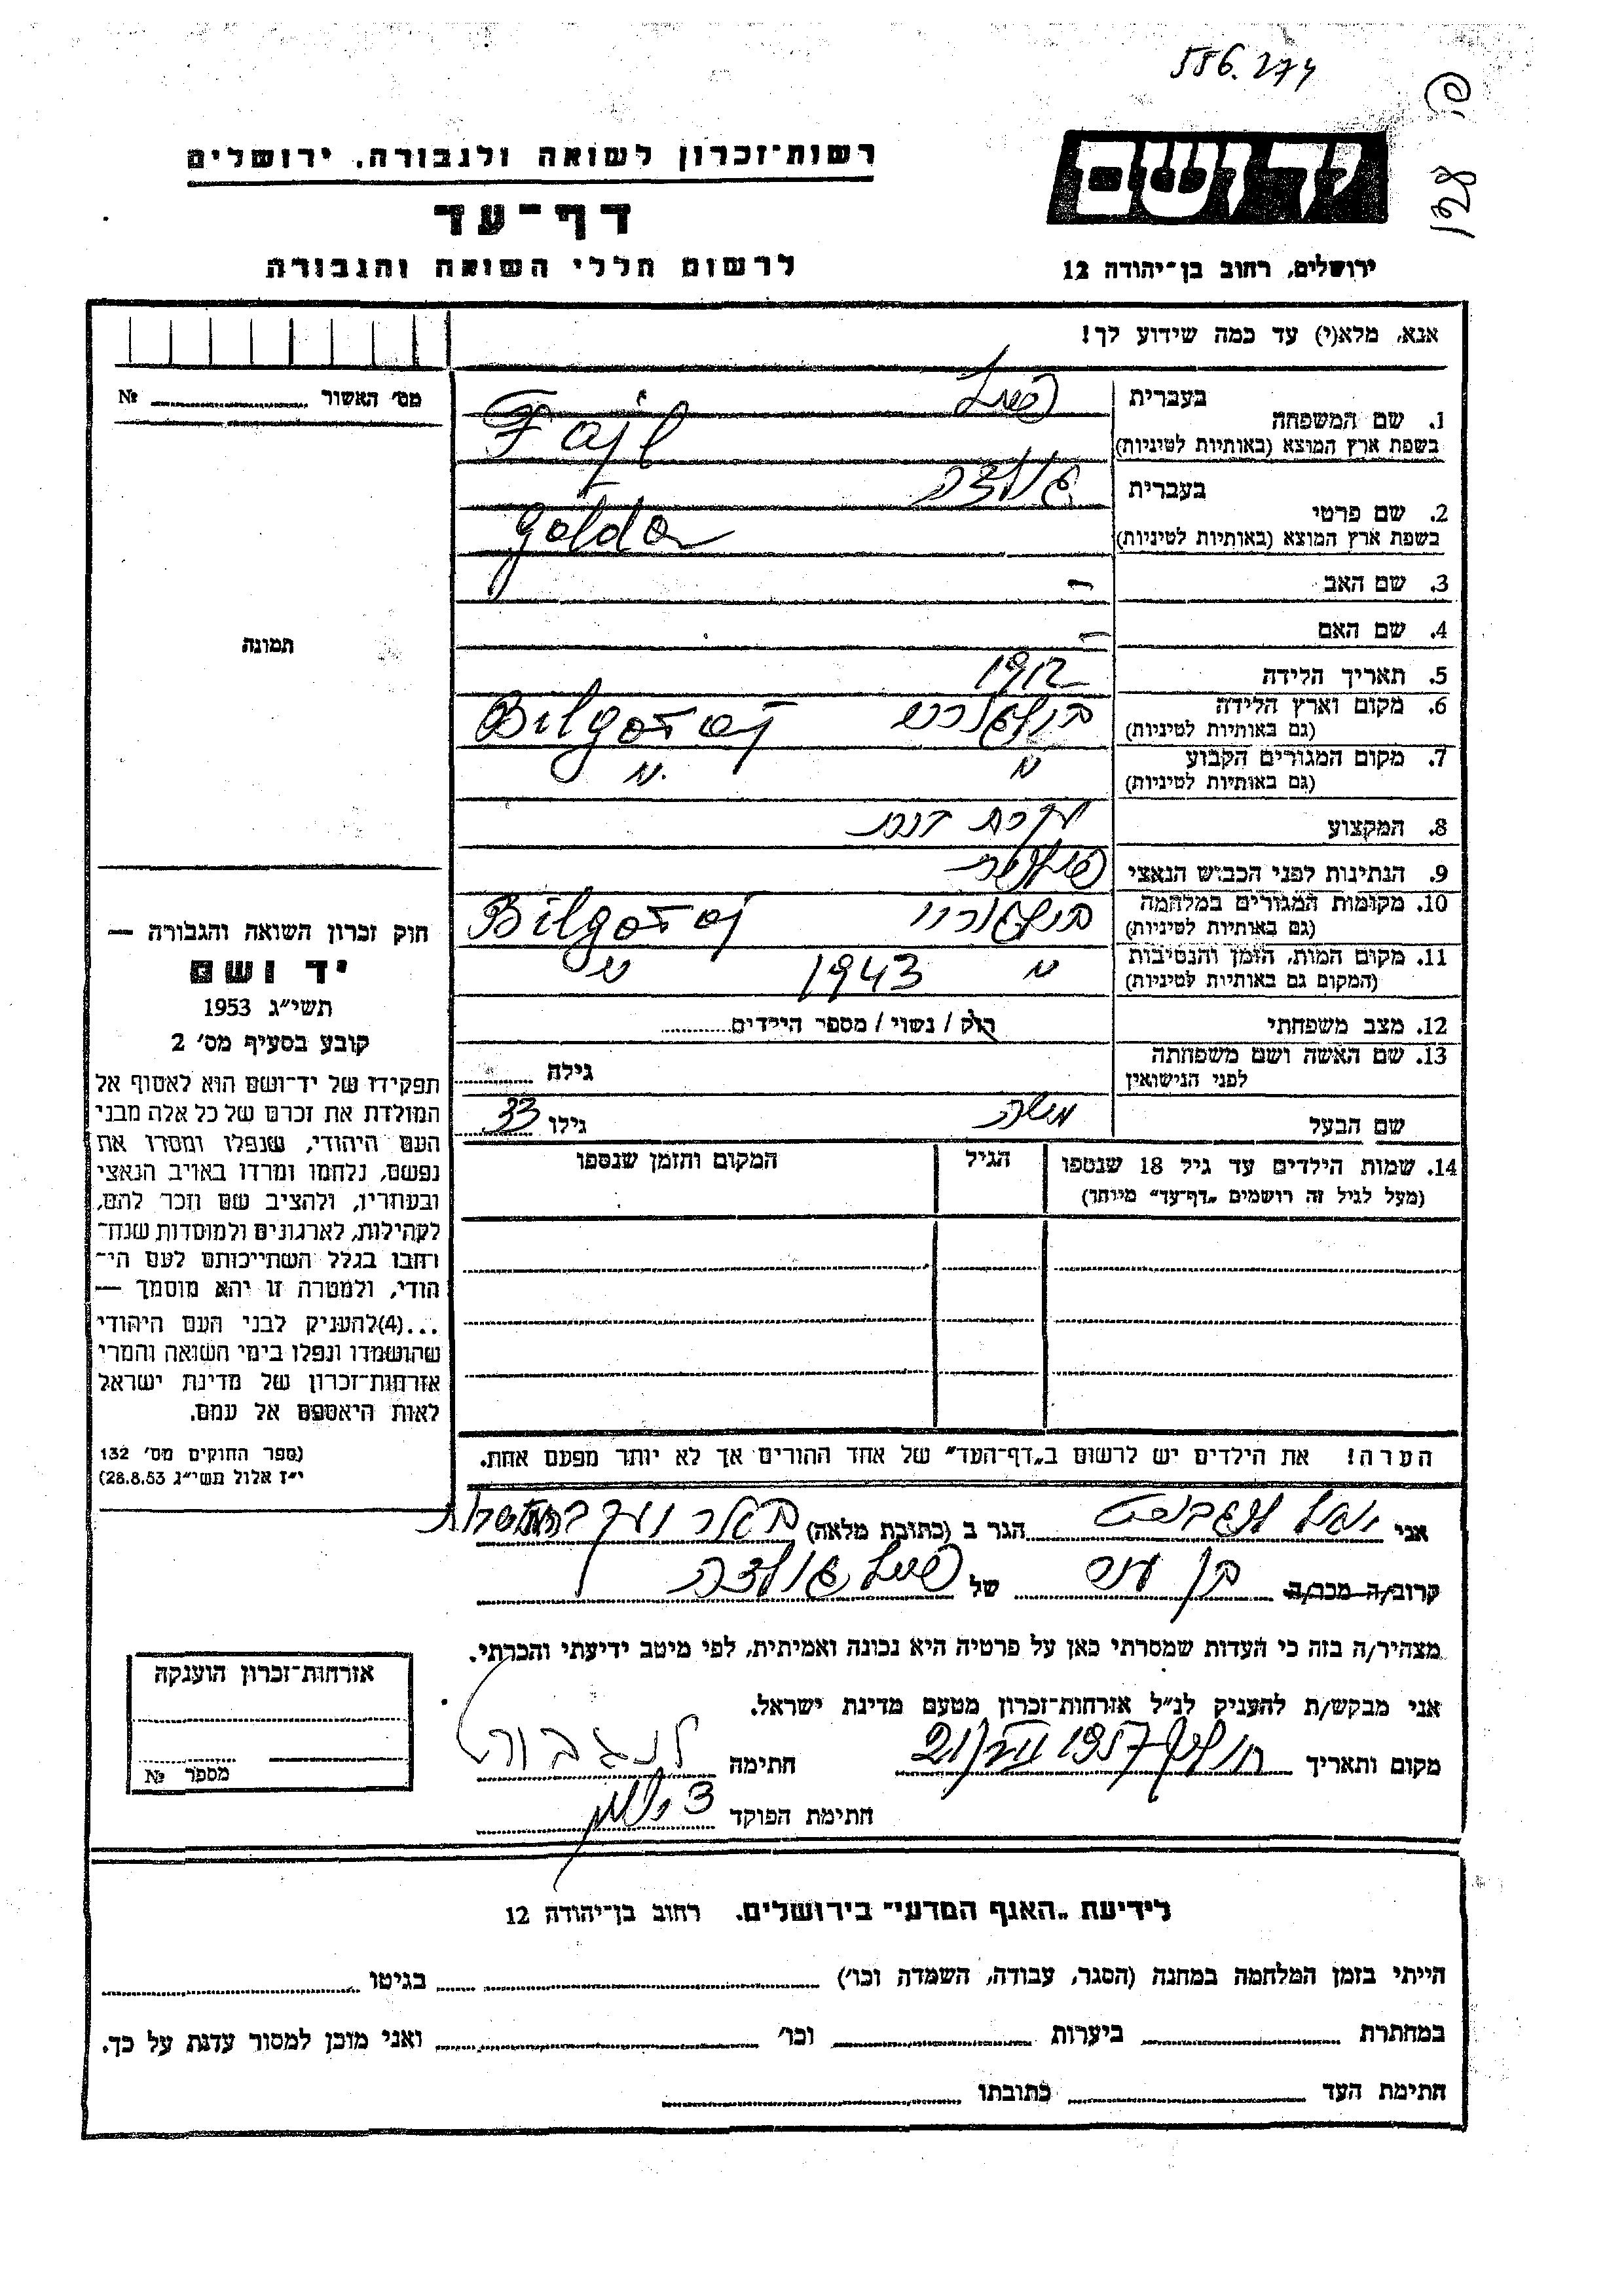 556.274
רשות־זכרון לשואה ולגבורה, ירושלים
יד ושם
דף־עד
לרשום חללי השואה והגבורה
ירושלים, רחוב בן־יהודה 12
אנא, מלא(י) עד כמה שידוע לך!
מס׳ האשור № 
1. שם המשפחה
בעברית פייל
בשפת ארץ המוצא (באותיות לטיניות) Fajl
2. שם פרטי
בעברית גולדה
בשפת ארץ המוצא (באותיות לטיניות) Golda
3. שם האב –
4. שם האם –
תמונה
5. תאריך הלידה 1912
6. מקום וארץ הלידה
(גם באותיות לטיניות) Bilgoraj
7. מקום המגורים הקבוע
(גם באותיות לטיניות)
8. המקצוע עקרת
9. הנתינות לפני הכבוש הנאצי
10. מקומות המגורים במלחמה
(גם באותיות לטיניות) בילגוריי Bilgoraj
11. מקום המות, הזמן והנסיבות
(המקום גם באותיות לטיניות) 1943
12. מצב משפחתי רוק / נשוי / מספר הילדים
13. שם האשה ושם משפחתה
לפני הנישואין גילה
שם הבעל משה גילו 33
14. שמות הילדים עד גיל 18 שנספו הגיל המקום והזמן שנספו
(מעל לגיל זה רושמים „דף־עד״ מיוחד)
הערה! את הילדים יש לרשום ב„דף־העד״ של אחד ההורים אך לא יותר מפעם אחת.
חוק זכרון השואה והגבורה —
יד ושם
תשי״ג 1953
קובע בסעיף מס׳ 2
תפקידו של יד־ושם הוא לאסוף אל
המולדת את זכרם של כל אלה מבני
העם היהודי, שנפלו ומסרו את
נפשם, נלחמו ומרדו באויב הנאצי
ובעוזריו, ולהציב שם וזכר להם,
לקהילות, לארגונים ולמוסדות שנח־
רבו בגלל השתייכותם לעם הי־
הודי, ולמטרה זו יהא מוסמך —
...(4)להעניק לבני העם היהודי
שהושמדו ונפלו בימי השואה והמרי
אזרחות־זכרון של מדינת ישראל
לאות היאספם אל עמם.
(ספר החוקים מס׳ 132
י״ז אלול תשי״ג 28.8.53)
אני הגר ב (כתובת מלאה) באר
קרוב/ה מכר/ה בן של פייל גולדה
מצהיר/ה בזה כי העדות שמסרתי כאן על פרטיה היא נכונה ואמיתית, לפי מיטב ידיעתי והכרתי.
אני מבקש/ת להעניק לנ״ל אזרחות־זכרון מטעם מדינת ישראל.
מקום ותאריך 21/VII 1957 חתימה לנגבורט
חתימת הפוקד
אזרחות־זכרון הוענקה
מספר №
לידיעת „האגף המדעי״ בירושלים. רחוב בן־יהודה 12
הייתי בזמן המלחמה במחנה (הסגר, עבודה, השמדה וכו׳) בגיטו
במחתרת ביערות וכו׳ ואני מוכן למסור עדות על כך.
חתימת העד כתובתו